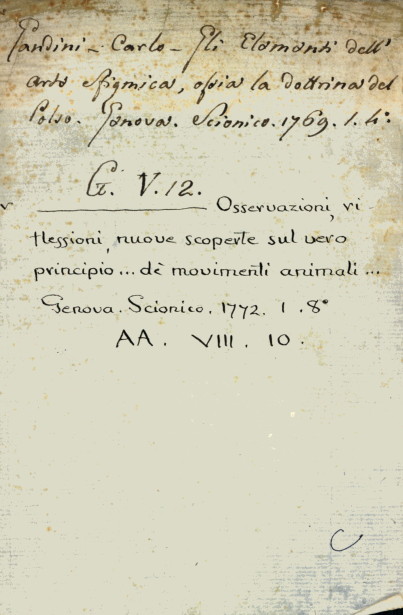 Gandini - Carlo - Gli Elementi dell'
arte sfigmica, ossia la dottrina del
Polso. Genova. Scionico. 1769. 1. 4°.
G. V. 12.
Osservazioni, ri
flessioni, nuove scoperte sul vero
principio... dè movimenti animali...
Genova. Scionico. 1772. 1. 8°
AA. VIII. 10.